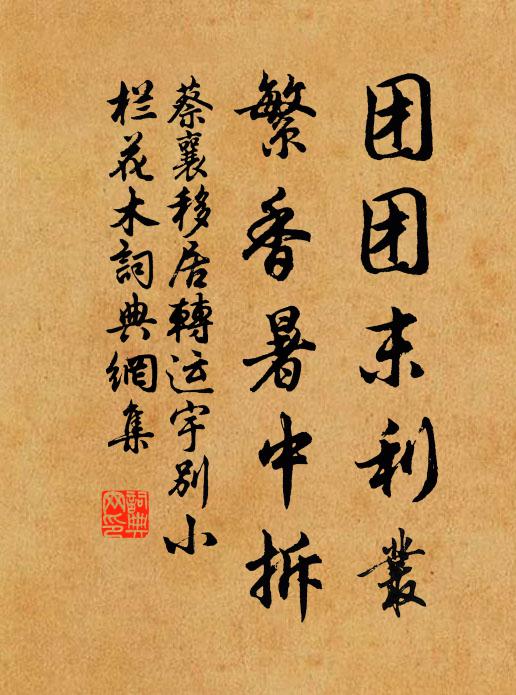 团团末利叢
繁香暑中拆
蔡襄移居轉运宇别小
栏花木詞典網集
詞典网印